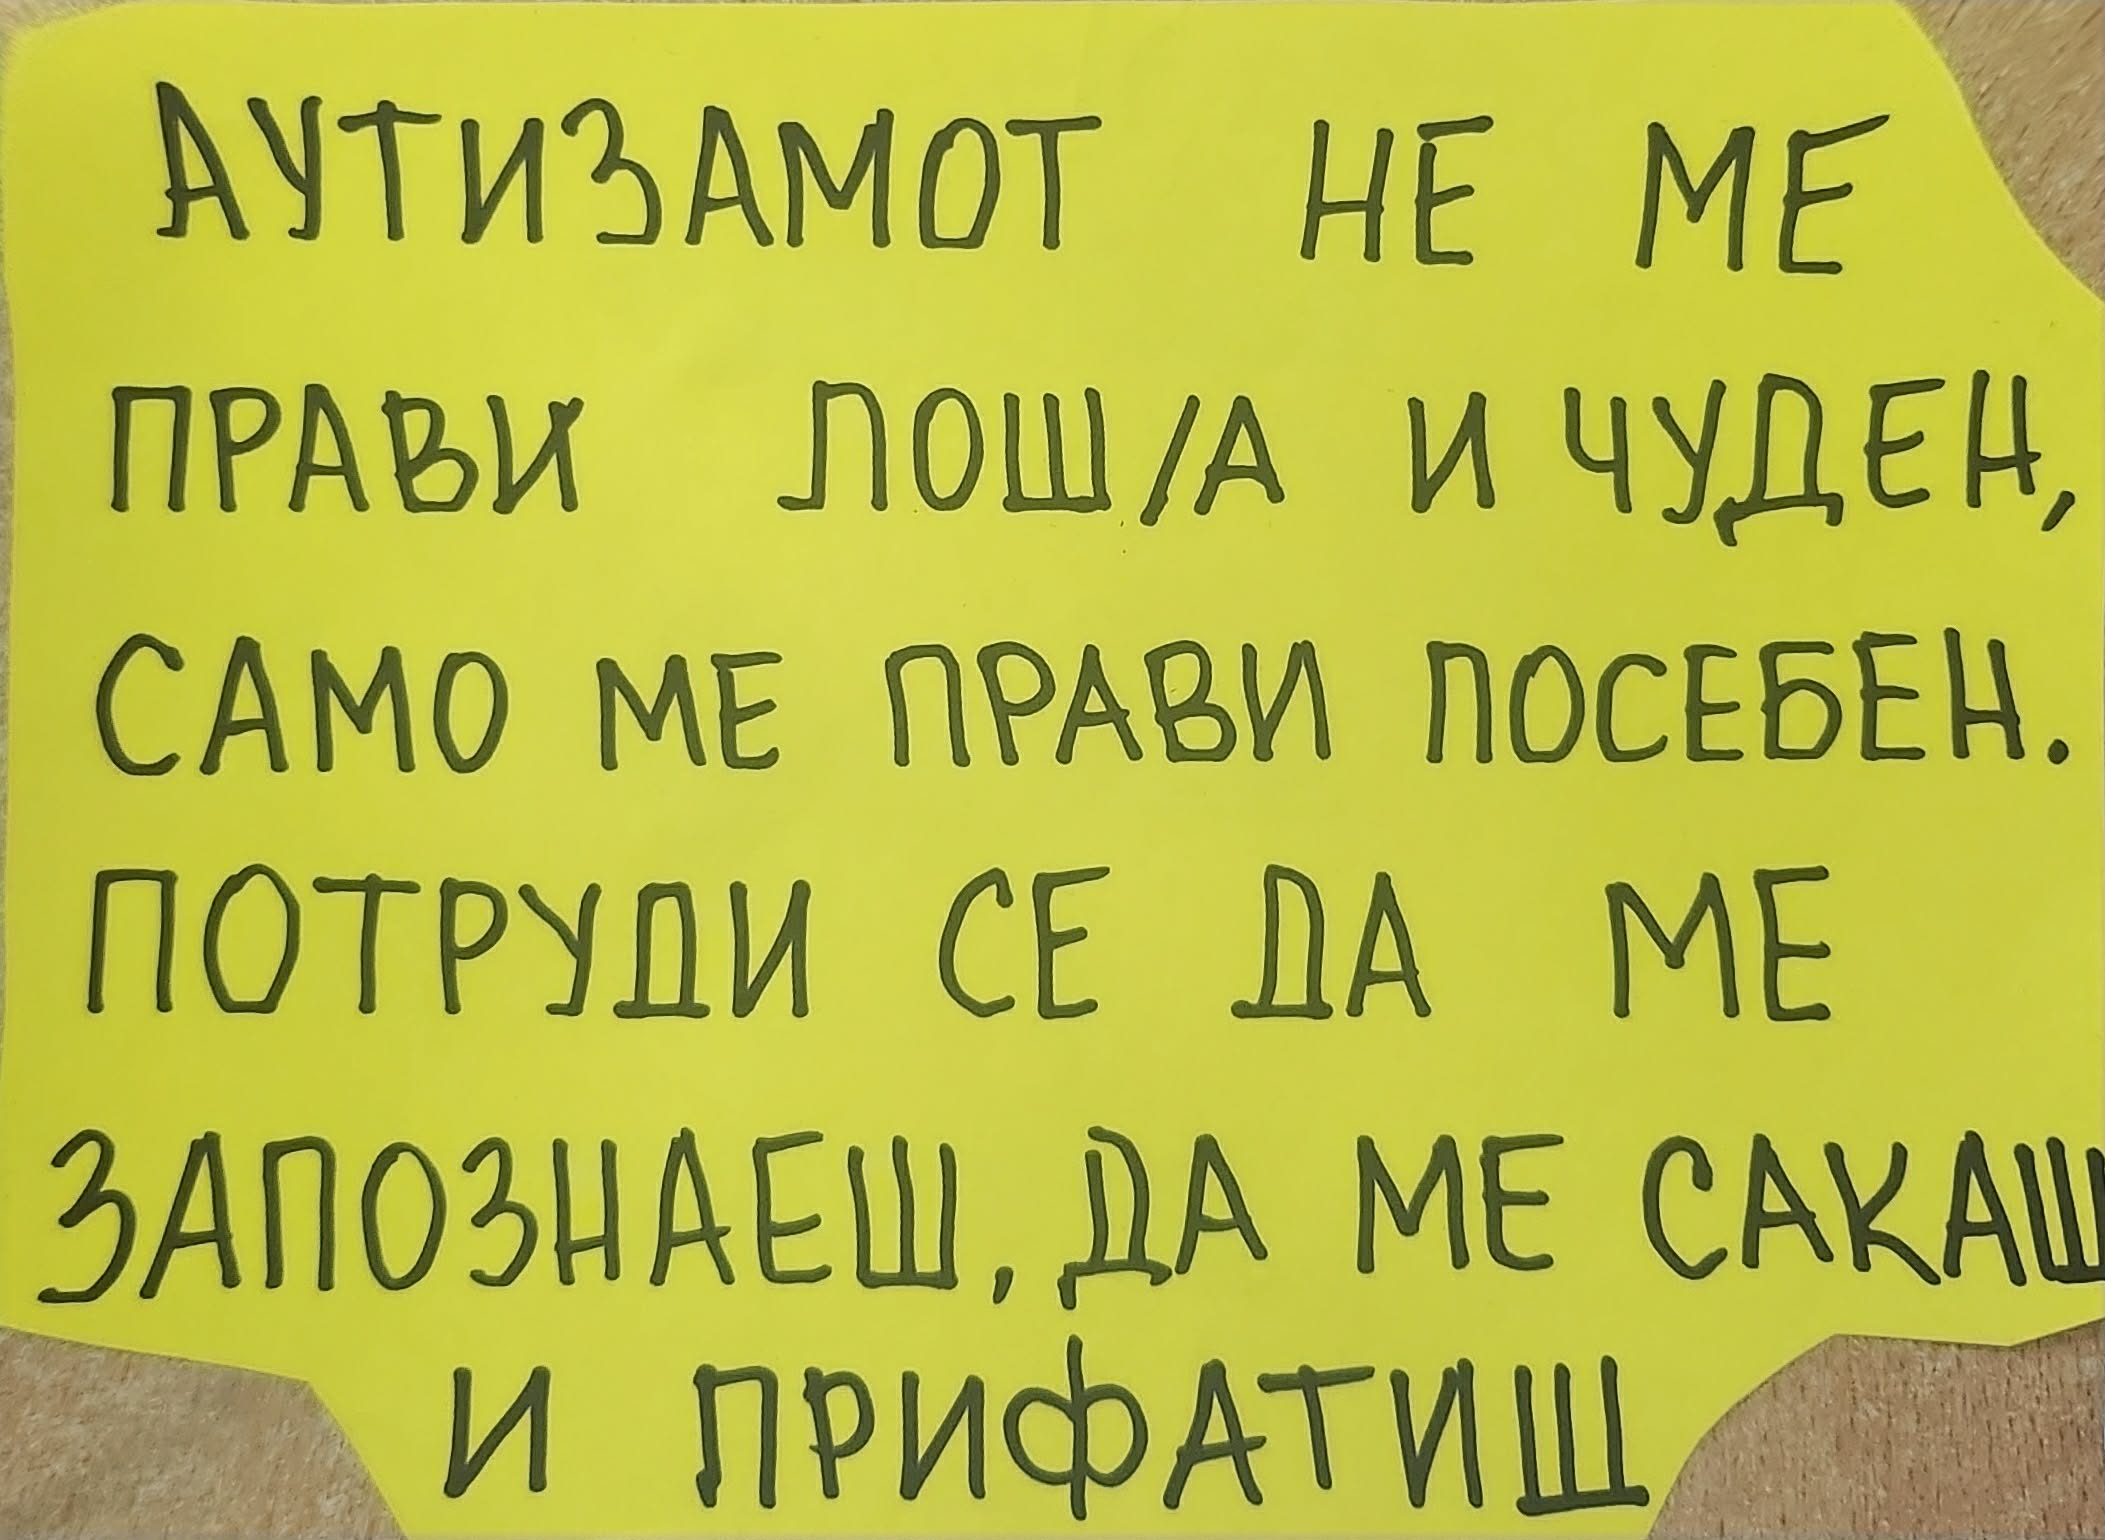 АУТИЗАМОТ НЕ МЕ
ПРАВИ ЛОШ/А И ЧУДЕН,
САМО МЕ ПРАВИ ПОСЕБЕН.
ПОТРУДИ СЕ ДА МЕ
ЗАПОЗНАЕШ, ДА МЕ САКАШ
И ПРИФАТИШ